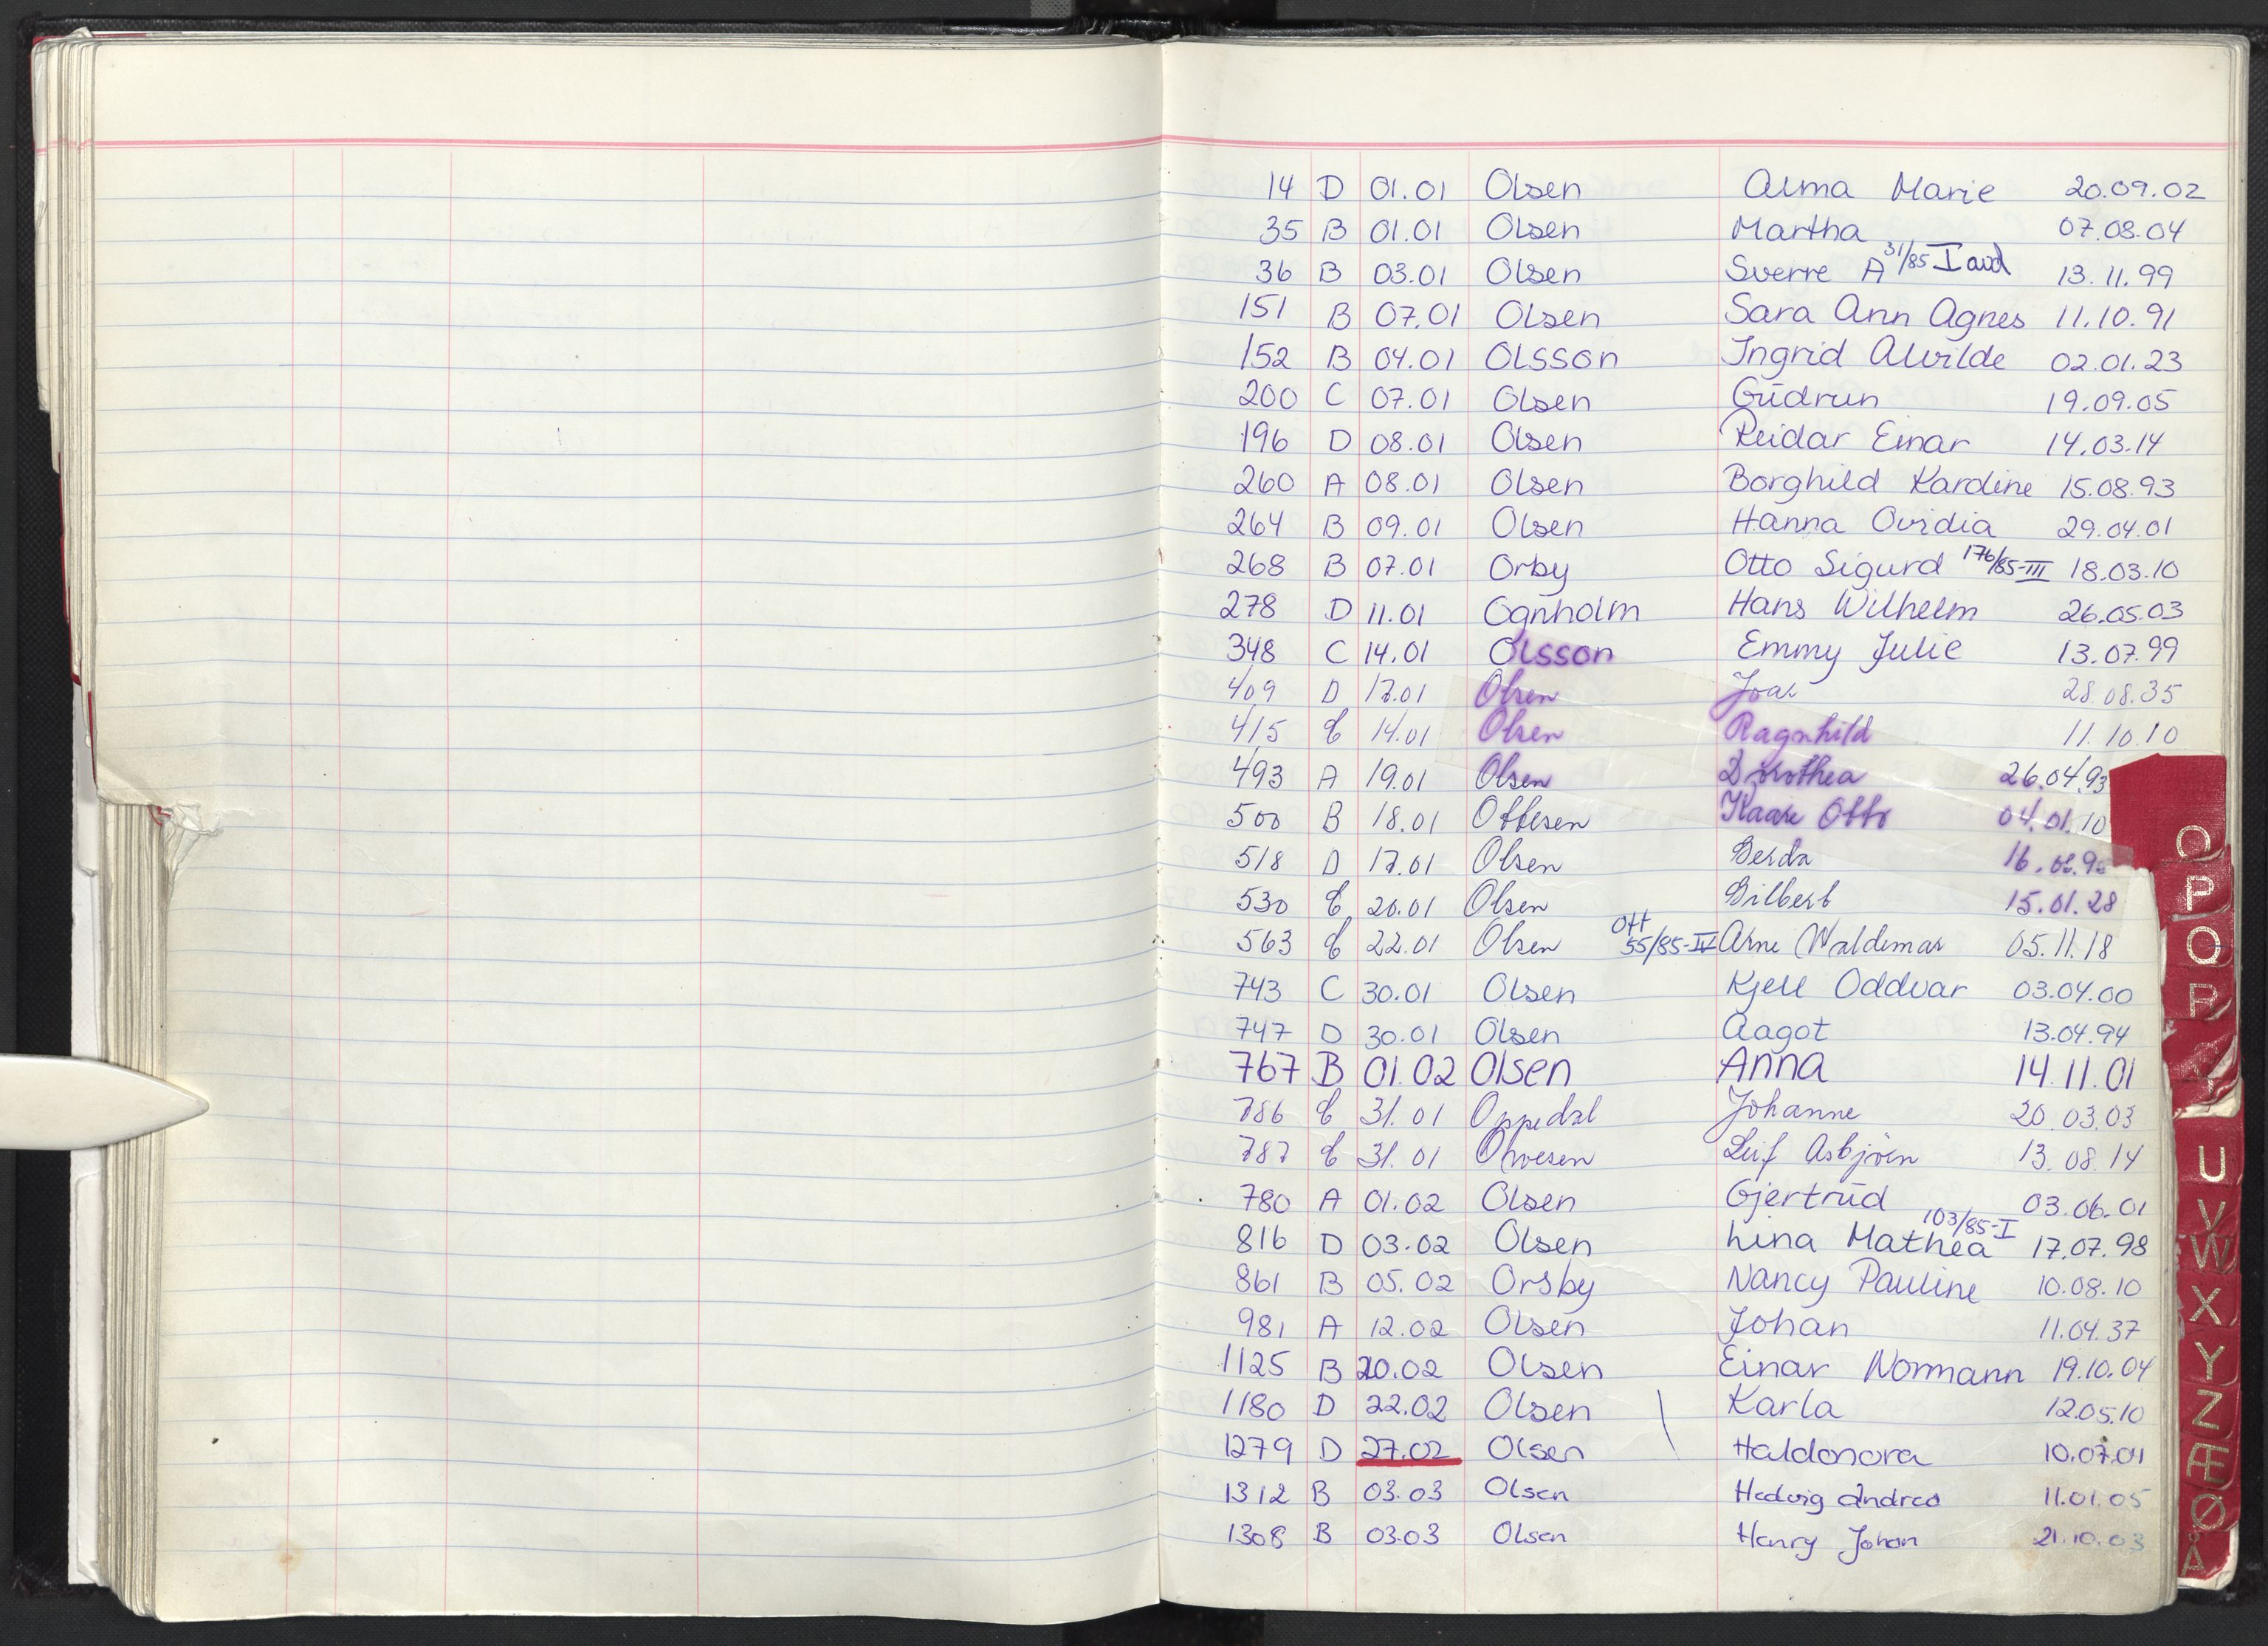 14 D 01.01 Olsen Alma Marie 20.09.02
35 B 01.01 Olsen Martha 07.08.04
36 B 03.01 Olsen Sverre A 31/85 I avd 13.11.99
151 B 07.01 Olsen Sara Ann Agnes 11.10.91
152 B 04.01 Olsson Ingrid Alvilde 02.01.23
200 C 07.01 Olsen Gudrun 19.09.05
196 D 08.01 Olsen Reidar Einar 14.03.14
260 A 08.01 Olsen Borghild Karoline 15.08.93
264 B 09.01 Olsen Hanna Ovidia 29.04.01
268 B 07.01 Orby Otto Sigurd 176/85-III 18.03.10
278 D 11.01 Ognholm Hans Wilhelm 26.05.03
348 C 14.01 Olsson Emmy Julie 13.07.99
409 D 17.01 Olsen Joar 28.08.35
415 C 14.01 Olsen Ragnhild 11.10.10
493 A 19.01 Olsen Dorothea 26.04.93
500 B 18.01 Ottesen Kaare Otto 04.01.10
518 D 17.01 Olsen Gerda
530 C 20.01 Olsen Gilbert 15.01.28
563 C 22.01 Olsen Off 55/85-IV Arne Waldemar 05.11.18
743 C 30.01 Olsen Kjell Oddvar 03.04.00
747 D 30.01 Olsen Aagot 13.04.94
767 B 01.02 Olsen Anna 14.11.01
786 C 31.01 Oppedal Johanne 20.03.03
787 C 31.01 Leif Asbjörn 13.08.14
780 A 01.02 Olsen Gjertrud 03.06.01
816 D 03.02 Olsen Lina Mathea 103/85-I 17.07.98
861 B 05.02 Orsby Nancy Pauline 10.08.10
981 A 12.02 Olsen Johan 11.04.37
1125 B 20.02 Olsen Einar Normann 19.10.04
1180 D 22.02 Olsen Karla 12.05.10
1279 D 27.02 Olsen Haldonora 10.07.01
1312 B 03.03 Olsen Hedvig Andrea 11.01.05
1308 B 03.03 Olsen Henry Johan 21.10.03
O
P
Q
R
U
V
W
X
Y
Z
Æ
Ø
Å